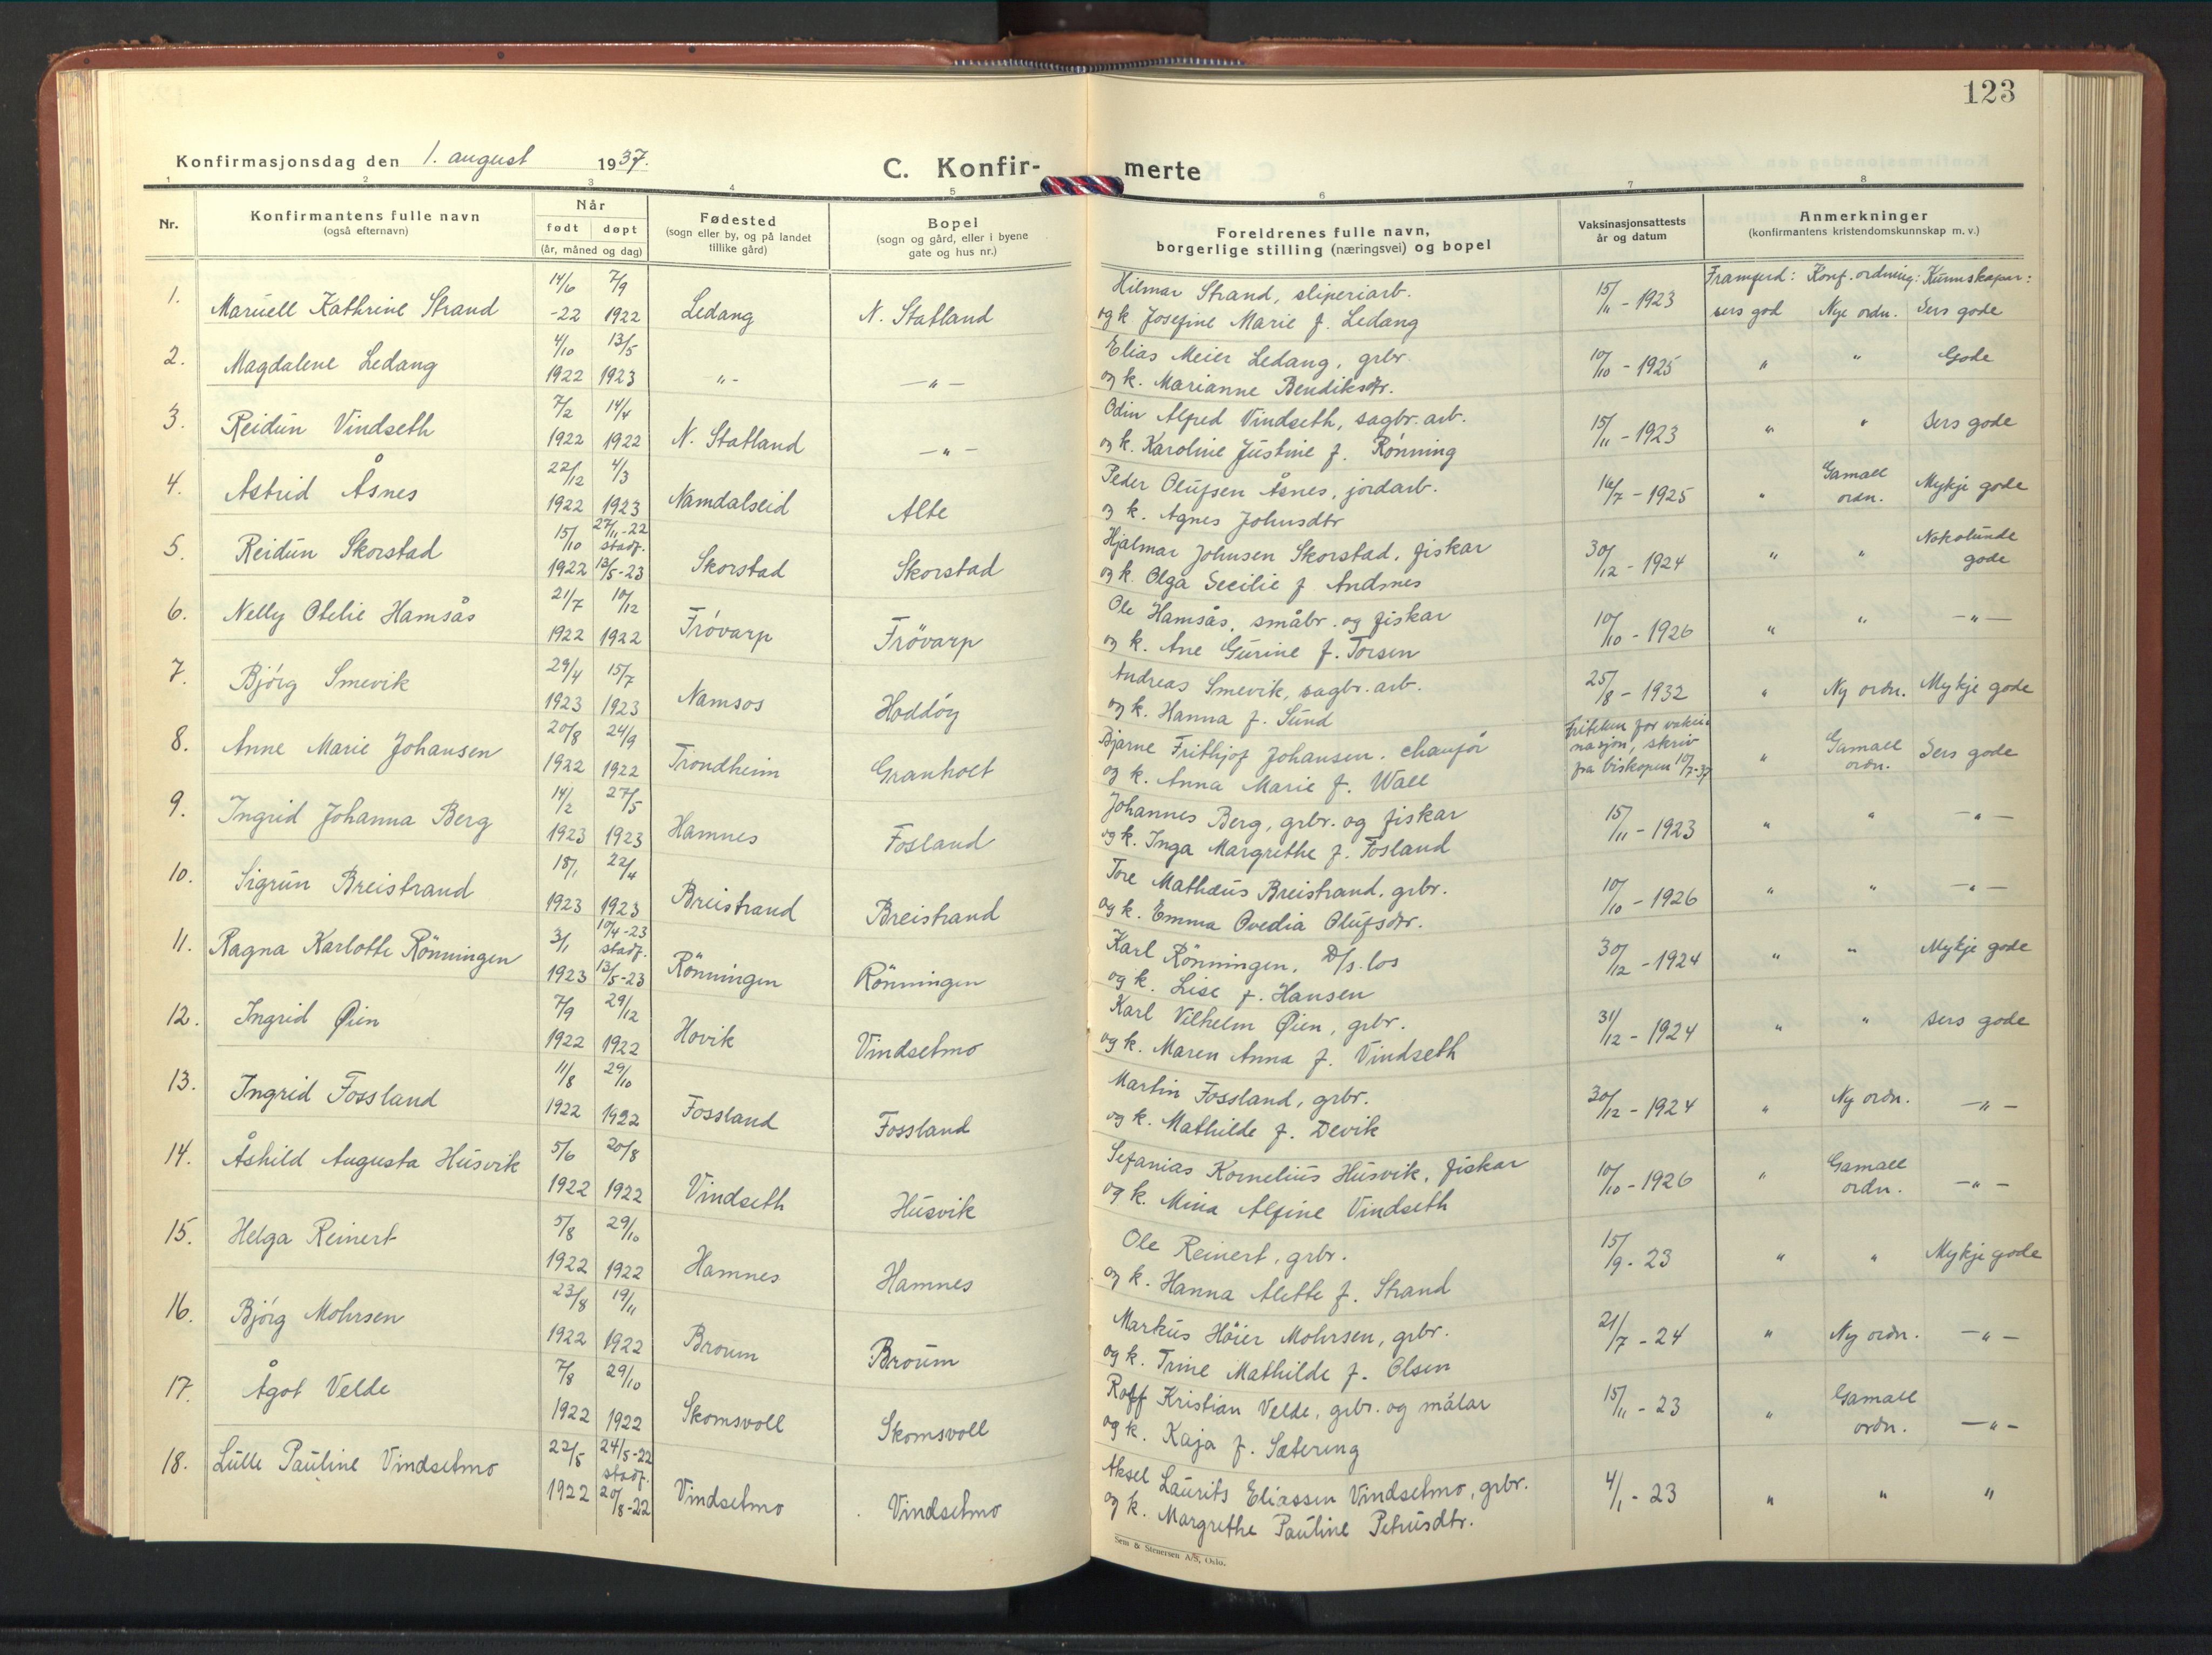 123
Konfirmasjonsdag den 1. august 1937.
C. Konfir- merte
1 2 3 4 5 6 7 8
Nr.
Konfirmantens fulle navn
(også efternavn)
Når
født døpt
(år, måned og dag)
Fødested
(sogn eller by, og på landet
tillike gård)
Bopel
(sogn og gård, eller i byene
gate og hus nr.)
Foreldrenes fulle navn,
borgerlige stilling (næringsvei) og bopel
Vaksinasjonsattests
år og datum
Anmerkninger
(konfirmantens kristendomskunnskap m. v.)
Framferd: Konf. ordning: Kunnskapar:
1. Maruell Kathrine Strand 14/6 -22 7/9 1922 Ledang N. Statland Hilmar Strand, sliperiarb. 15/11 - 1923 sers god Nye ordn. Sers gode
og k Josefine Marie f. Ledang
2. Magdalene Ledang 4/10 1922 13/5 1923 " - — " — Elias Meier Ledang, grbr. 10/10 - 1925 " " Gode
og k. Marianne Bendiksdtr.
3. Reidun Vindseth 7/2 1922 14/4 1922 N. Statland — " — Odin Alfred Vindseth, sagbr. arb. 15/11 - 1923 " " Sers gode
og k. Karoline Justine f. Rønning
4. Astrid Åsnes 22/12 1922 4/3 1923 Namdalseid Alte Peder Olufsen Åsnes, jordarb. 16/7 - 1925 " Gamall ordn. Mykje gode
og k. Agnes Johnsdtr
5. Reidun Skorstad 15/10 1922 27/11-22 stadf. 13/5-23 Skorstad Skorstad Hjalmar Johnsen Skorstad, fiskar 30/12 - 1924 " " Nokolunde gode
og k. Olga Secilie f Andsnes
6. Nelly Otelie Hamsås 21/7 1922 10/12 1922 Frøvarp Frövarp Ole Hamsås, småbr. og fiskar 10/10 - 1926 " " — " —
og k. Ane Gurine f. Torsen
7. Bjórg Smevik 29/4 1923 15/7 1923 Namsos Hoddøy Andreas Smevik, sagbr. arb. 25/8 - 1932 " Ny ordn. Mykje gode
og k. Hanna f. Sund
8. Anne Marie Johansen 20/8 1922 24/9 1922 Trondheim Granholt Bjarne Frithjof Johansen, chauför friteken for vaksinasjon, skriv fra biskopen 10/7-37 " Gamall ordn. Sers gode
og k. Anna Marie f. Wall
9. Ingrid Johanna Berg 14/2 1923 27/5 1923 Hamnes Fosland Johannes Berg, grbr. og fiskar 15/11 - 1923 " " — " —
og k. Inga Margrethe f. Fosland
10. Sigrun Breistrand 18/1 1923 22/4 1923 Breistrand Breistrand Tore Mathæus Breistrand, grbr. 10/10 - 1926 " " — " —
og k. Emma Ovedia Olufsdtr.
11. Ragna Karlotte Rönningen 3/1 1923 10/4-23 stadf. 13/5-23 Rönningen Rönningen Karl Rönningen, D/s. los 30/12 - 1924 " " Mykje gode
og k. Lise f. Hansen
12. Ingrid Øien 7/9 1922 29/12 1922 Hovik Vindsetmo Karl Vilhelm Øien, grbr. 31/12 - 1924 " " sers gode
og k. Maren Anna f. Vindseth
13. Ingrid Fossland 11/8 1922 29/10 1922 Fossland Fossland Martin Fossland, grbr. 30/12 - 1924 " Ny ordn. — " —
og k. Mathilde f. Devik
14. Åshild Augusta Husvik 5/6 1922 20/8 1922 Vindseth Husvik Sefanias Kornelius Husvik, fiskar 10/10 - 1926 " Gamall ordn. — " —
og k. Mina Alfine Vindseth
15. Helga Reinert 5/8 1922 29/10 1922 Hamnes Hamnes Ole Reinert, grbr. 15/9 - 23 " " Mykje gode
og k. Hanna Alette f. Strand
16. Bjórg Mohrsen 23/8 1922 19/11 1922 Broum Broum Markus Höier Mohrsen, grbr. 21/7 - 24 " Ny ordn. — " —
og k. Trine Mathilde f. Olsen
17. Ågot Velde 7/8 1922 29/10 1922 Skomsvoll Skomsvoll Rolf Kristian Velde, grbr. og målar 15/11 - 23 " Gamall ordn. — " —
og k. Kaja f. Sætering
18. Lulle Pauline Vindsetmo 22/5 1922 24/5-22 stadf. 20/8-22 Vindsetmo Vindsetmo Aksel Laurits Eliassen Vindsetmo, grbr. 4/1 - 23 " " "
og k. Margrethe Pauline Petrusdtr.
Sem & Stenersen A/S, Oslo.